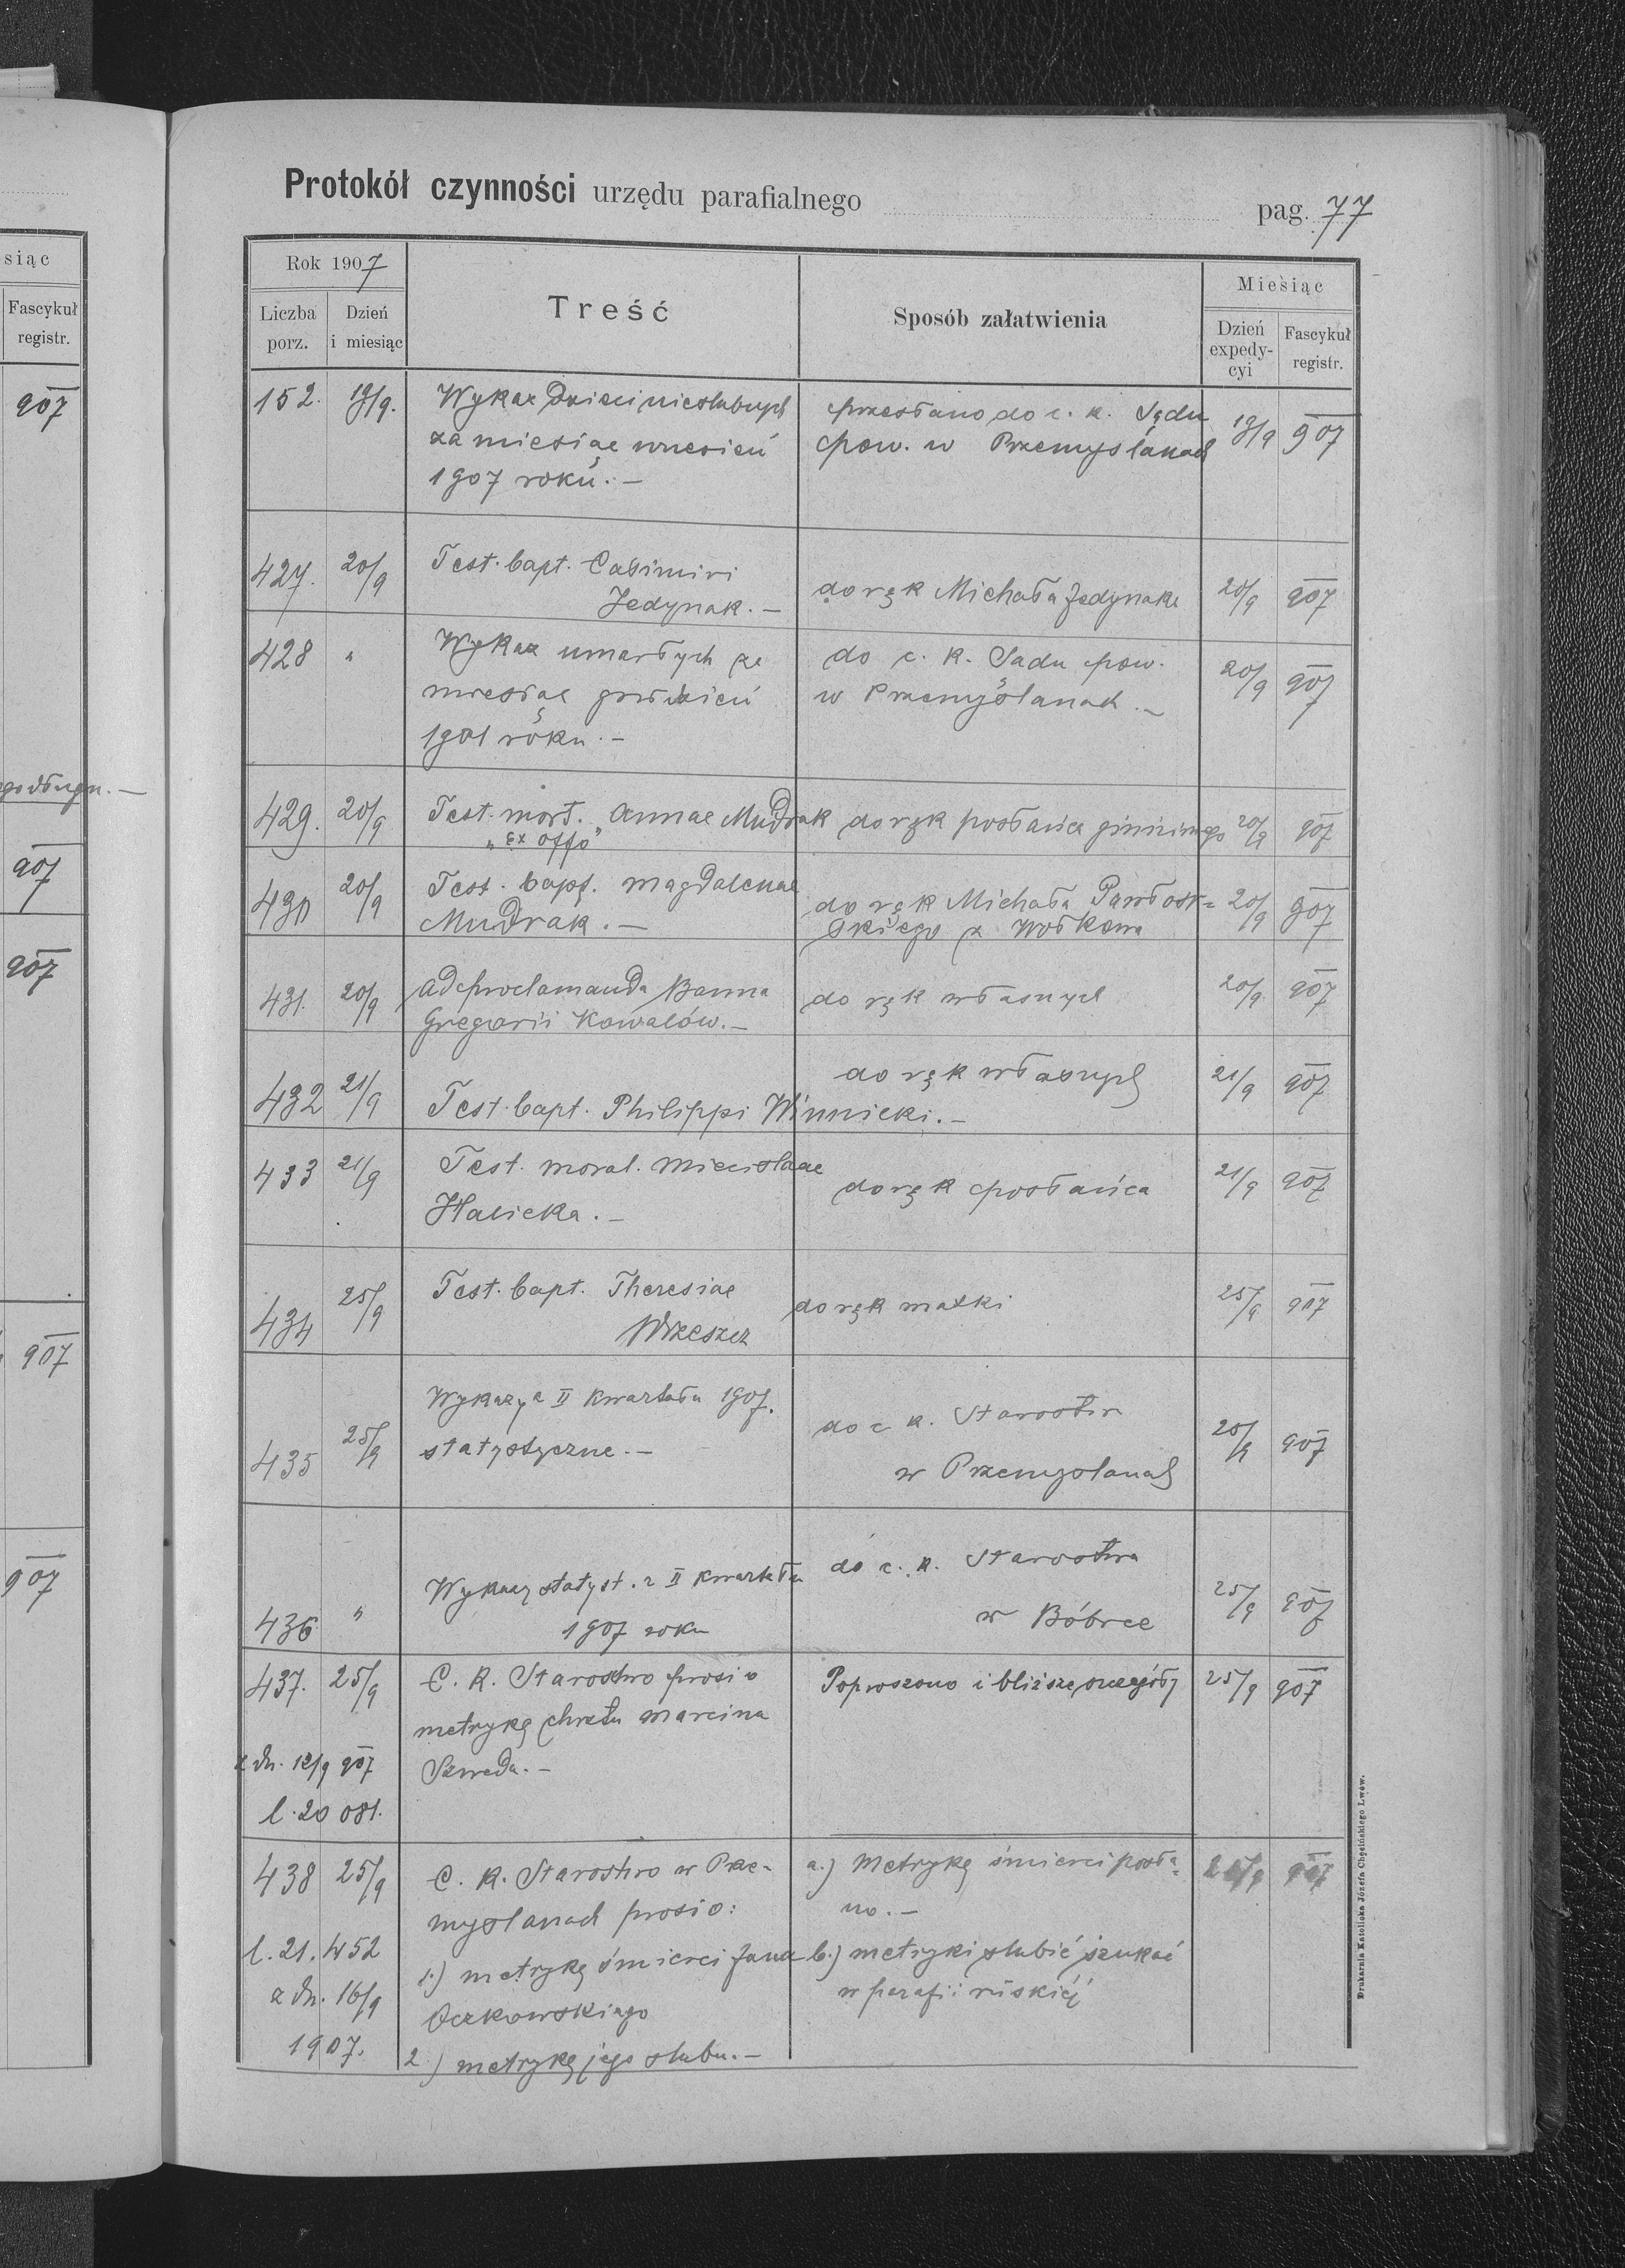 siąc
Fascykuł
registr.
907
907
907
907
907
Protokół czynności urzędu parafialnego
pag. 77
Rok 1907
Liczba porz.
Dzień i miesiąc
Treść
Sposób załatwienia
Miesiąc
Dzień expedy-cyi
Fascykuł registr.
152. 19/9. Wykaz dzieci nieślubnych przesłano do c. k. Sądu 19/9 907
za miesiąc wrzesień pow. w Przemyślanach
1907 roku. —
427. 20/9 Test. bapt. Casimiri
Jedynak. — do rąk Michała Jedynaka 20/9 907
428 " Wykaz umarłych za do c. k. Sadu pow. 20/9 907
miesiąc grudzień w Przemyślanach. —
1901 roku. —
429. 20/9 Test. mort. Annae Mudrak do rąk posłańca gminnego 20/9 907
"Ex offo"
430 20/9 Test. bapt. Magdalenae do rąk Michała Pawłow= 20/9 907
Mudrak. — skiego z Wołkowa
431. 20/9 Ad proclamanda Banna do rąk własnych 20/9 907
Gregorii Kowalów. —
432 21/9 do rąk własnych 21/9 907
Test. bapt. Philippi Winnicki. —
433 21/9 Test. moral. Miecislaae do rąk posłańca 21/9 907
Halicka. —
434 25/9 Test. bapt. Theresiae do rąk matki 25/9 907
Wrzeszcz
435 25/9 Wykazy z II kwartału 1907. do c k. Starostwa 25/9 907
statystyczne. — w Przemyslanach
436 " Wykazy statyst. z II kwartału do c. k. Starostwa 25/9 907
1907 roku w Bóbrce
437. 25/9 C. K. Starostwo prosi o Poproszono i bliższe szczegóły 25/9 907
metrykę chrztu Marcina
z dn. 12/9 907 Szweda. —
l. 20 081.
438 25/9 C. K. Starostwo w Prze- a.) Metrykę śmierci posła= 907
myslanach prosi o: no. —
l. 21. 452 1.) metrykę śmierci Jana b.) metryki slubić szukać
z dn. 16/9 Oczkowskiego w parafii ruskiéj
1907. 2.) metrykę jego slubu. —
Drukarnia Katolicka Józefa Chęcińskiego Lwów.